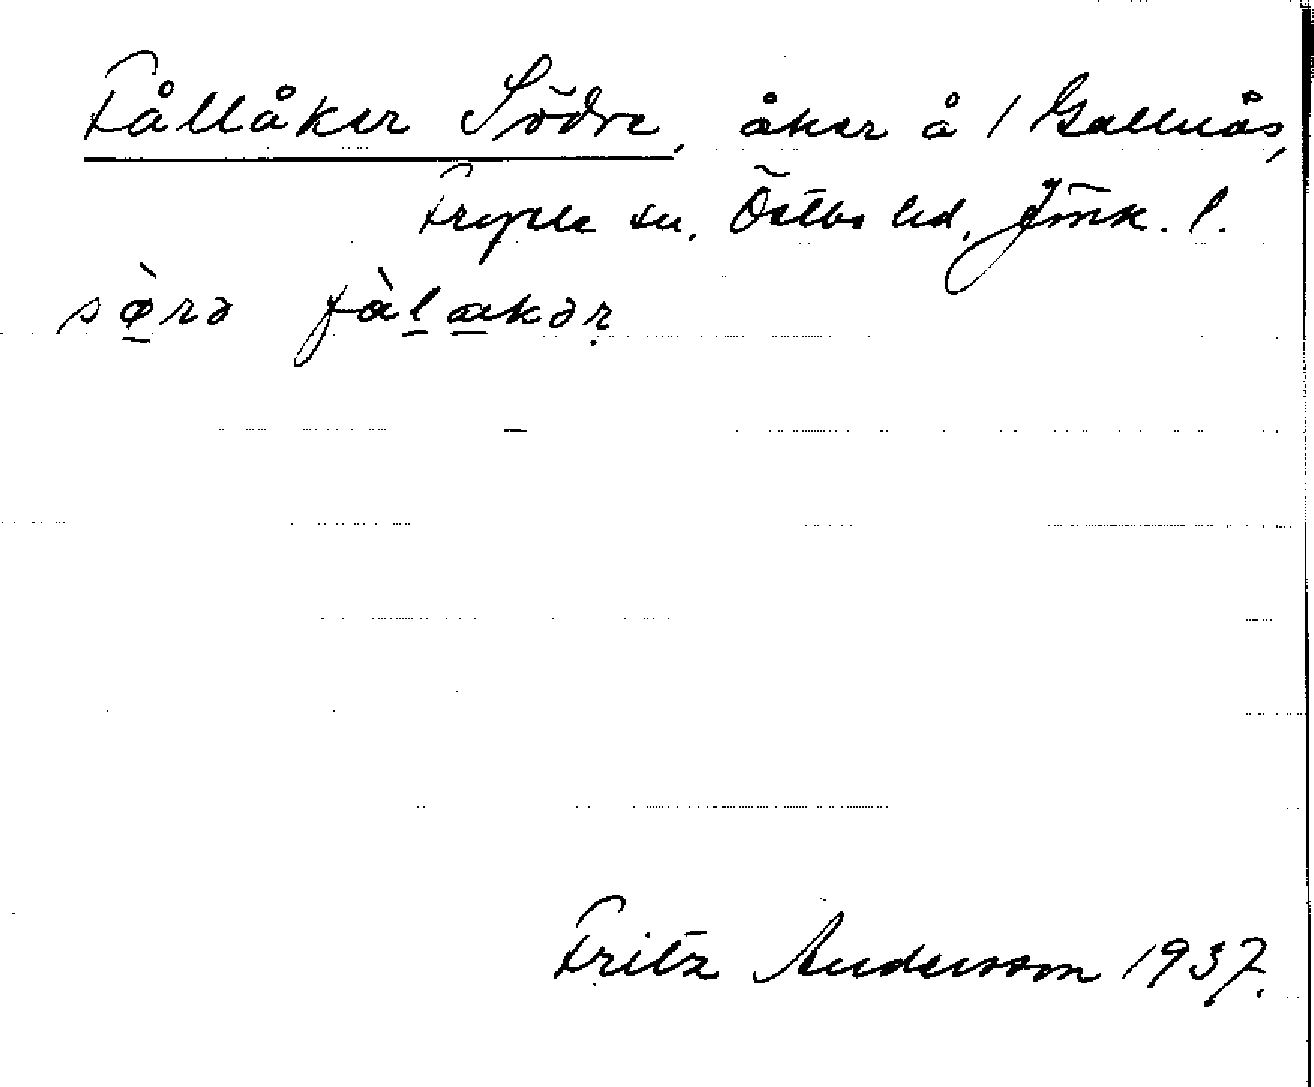 Fållåker Södre, åker å 1 Gallnäs,
Fryele sn. Östbo hd. Jmk. l.
sø̀rə fàlakər
Fritz Andersson 1937.